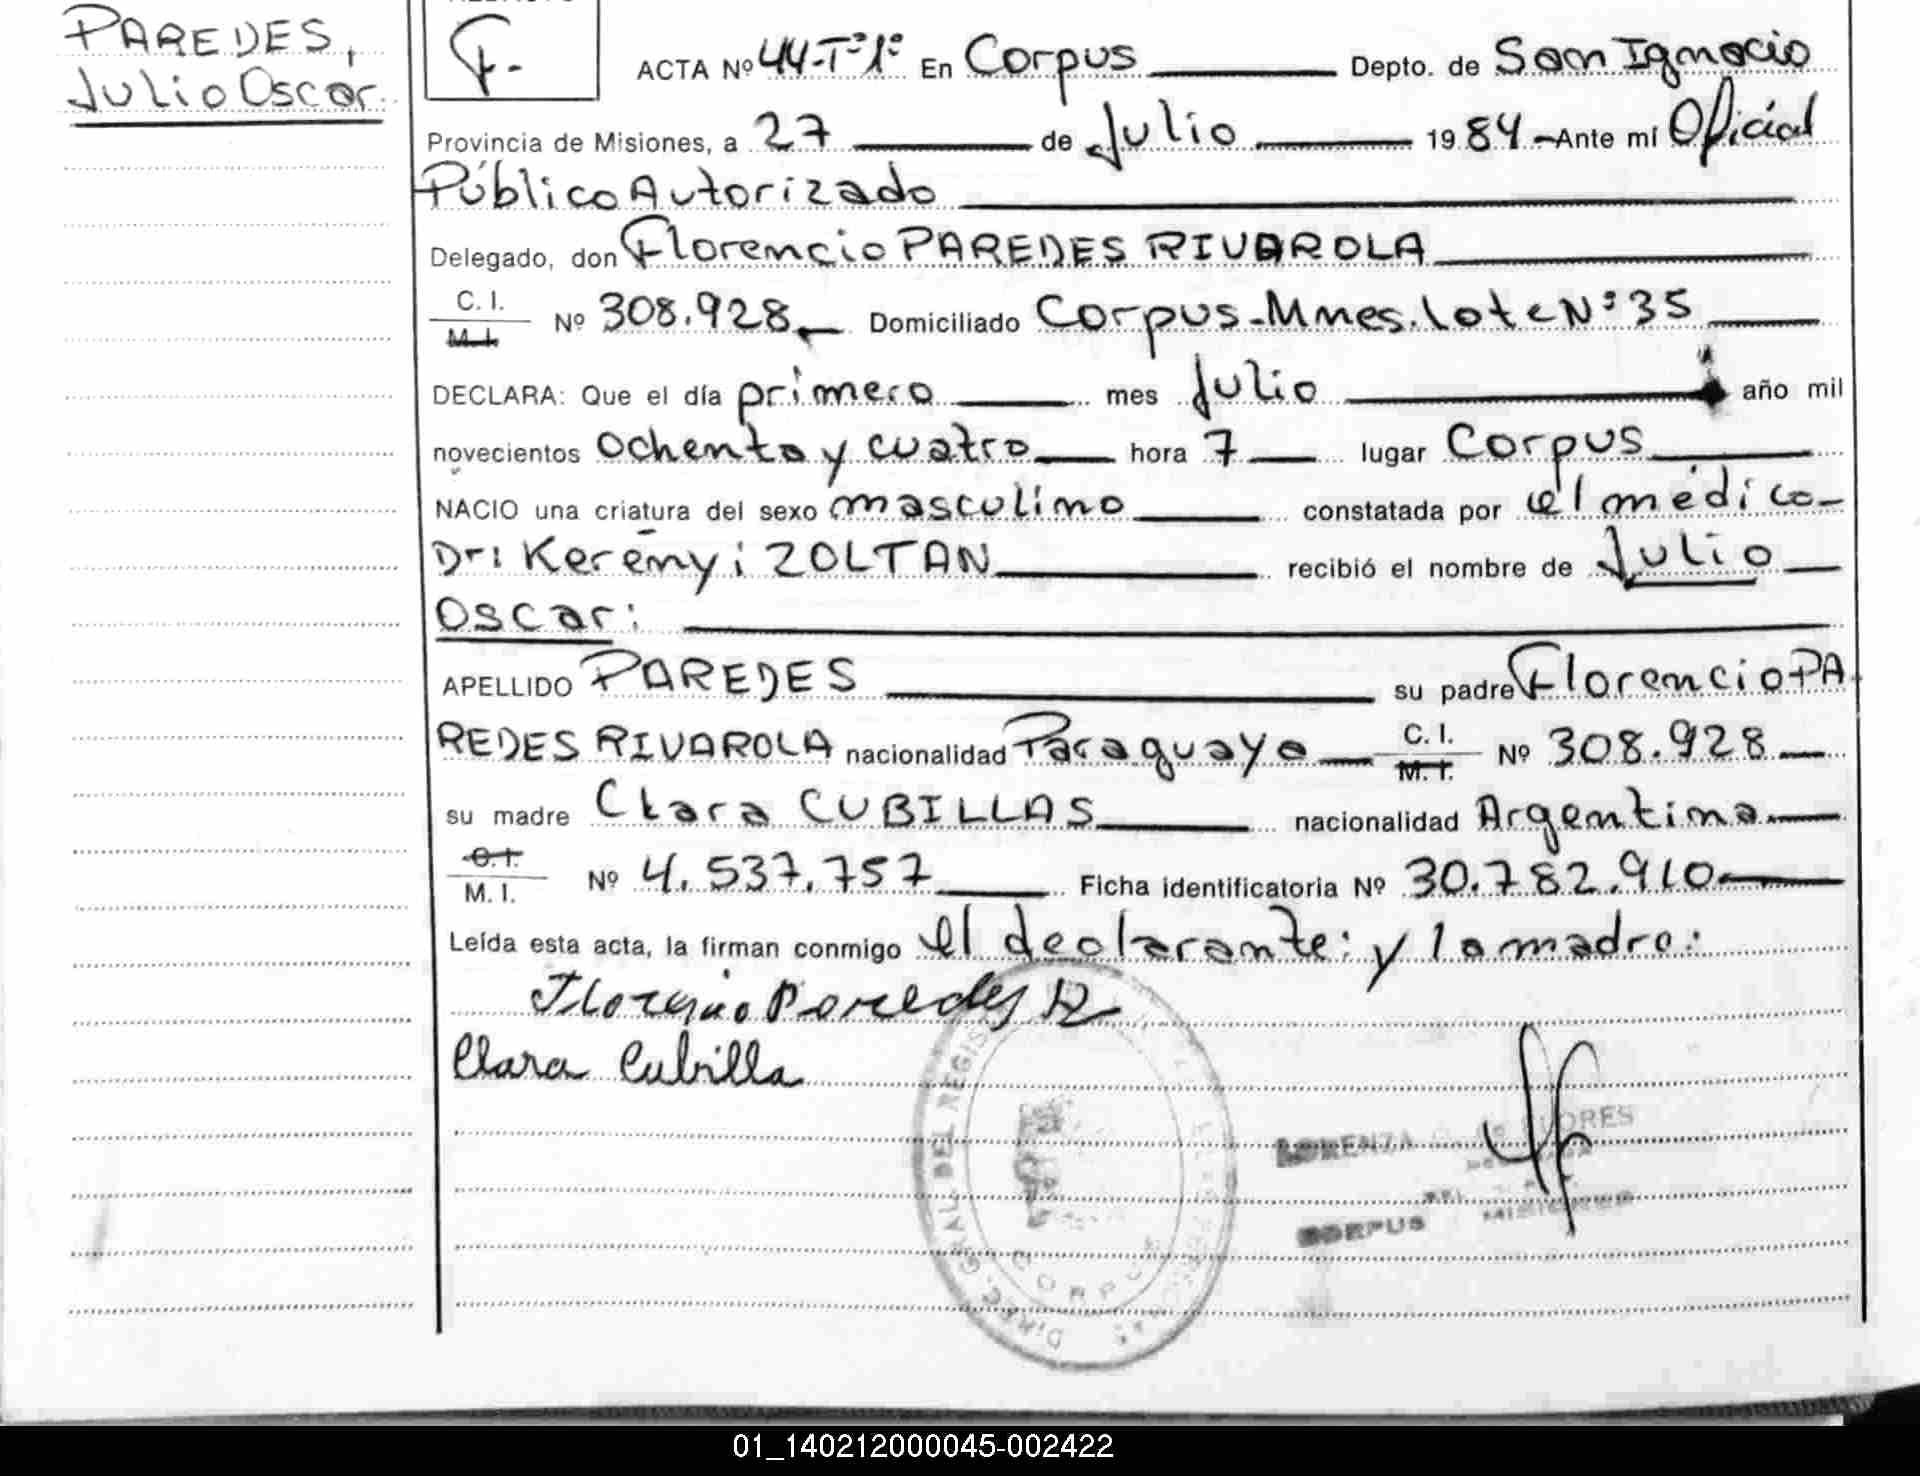 PAREDES,
Julio Oscar.
F.-
ACTA Nº 44-Tº1º En Corpus Depto. de San Ignacio
Provincia de Misiones, a 27 de Julio 1984 - Ante mí Oficial
Público Autorizado
Delegado, don Florencio PAREDES RIVAROLA
C. I.
M. I. Nº 308.928 Domiciliado Corpus-Mnes. Lote Nº 35
DECLARA: Que el día primero mes Julio año mil
novecientos ochenta y cuatro hora 7 lugar Corpus
NACIO una criatura del sexo masculino constatada por el médico
Dr: Kerényi ZOLTAN recibió el nombre de Julio
Oscar:
APELLIDO PAREDES su padre Florencio PA
REDES RIVAROLA nacionalidad Paraguaya C. I. M. I. Nº 308.928
su madre Clara CUBILLAS nacionalidad Argentina
C. I.
M. I. Nº 4.537.757 Ficha identificatoria Nº 30.782.910
Leída esta acta, la firman conmigo el declarante: y la madre:
Florencio Paredes R
Clara Cubilla
DIREC. GRAL. DEL REGIS
CORPUS
LORENZA FLORES
CORPUS MISIONES
01_140212000045-002422